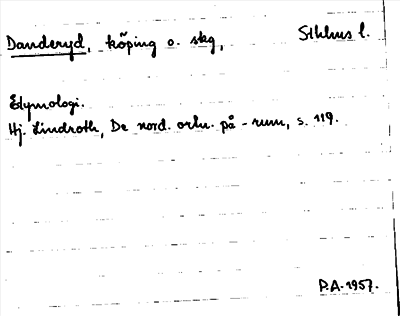 Danderyd, köping o. skg, Sthlms l.
Etymologi.
Hj. Lindroth, De nord. ortn. på -rum, s. 119.
P.A. 1957.